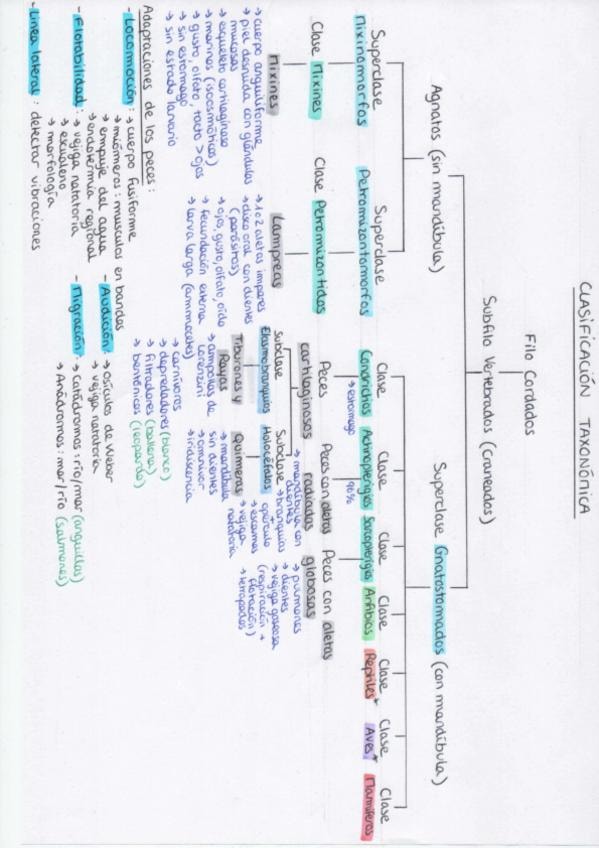 CLASIFICACIÓN TAXONÓMICA
Filo Cordados
Subfilo Vertebrados (Craneados)
Agnatos (sin mandíbula)
Superclase Gnatostomados (con mandíbula)
Superclase
Mixinomorfos
Superclase
Petromizontomorfos
Clase
Condrictios
→ estómago
Clase
Actinopterigios
96%
Clase
Sarcopterigios
Clase
Anfibios
Clase
Reptiles
Clase
Aves
Clase
Mamíferos
Clase Mixines
Clase Petromizontidos
Peces
cartilaginosos
Peces con aletas
radiadas
Peces con aletas
globosas
Mixines
→ cuerpo anguiliforme
→ piel desnuda con glándulas
mucosas
→ esqueleto cartilaginoso
→ marinos (isosmóticos)
→ gusto, olfato, tacto > ojos
→ sin estómago
→ sin estado larvario
Lampreas
→ 1 o 2 aletas impares
→ disco oral con dientes
(parásitos)
→ ojos, gusto, olfato, oído
→ fecundación externa
→ larva larga (ammocetes)
Subclase
Elasmobranquios
Tiburones y
Rayas
→ ampollas de
Lorenzini
→ carnívoros
→ depredadores (blanco)
→ filtradores (ballena)
→ bentónicos (leopardo)
Subclase
Holocéfalos
Quimeras
→ mandíbula
sin dientes
→ omnívoros
→ iridiscencia
→ mandíbula con
dientes
→ branquias +
opérculo
→ escamas
→ vejiga
natatoria
→ pulmones
→ dientes
→ vejiga gaseosa
(respiración +
flotación)
→ tetrápodos
Adaptaciones de los peces:
- Locomoción: → cuerpo fusiforme
→ miómeros: músculos en bandas
→ empuje del agua
→ endotermia regional
- Flotabilidad: → vejiga natatoria
→ escualeno
→ morfología
- Línea lateral: detectar vibraciones
- Audición: → osículos de Weber
→ vejiga natatoria
- Migración: → Catádromos: río/mar (anguillas)
→ Anádromos: mar/río (salmones)